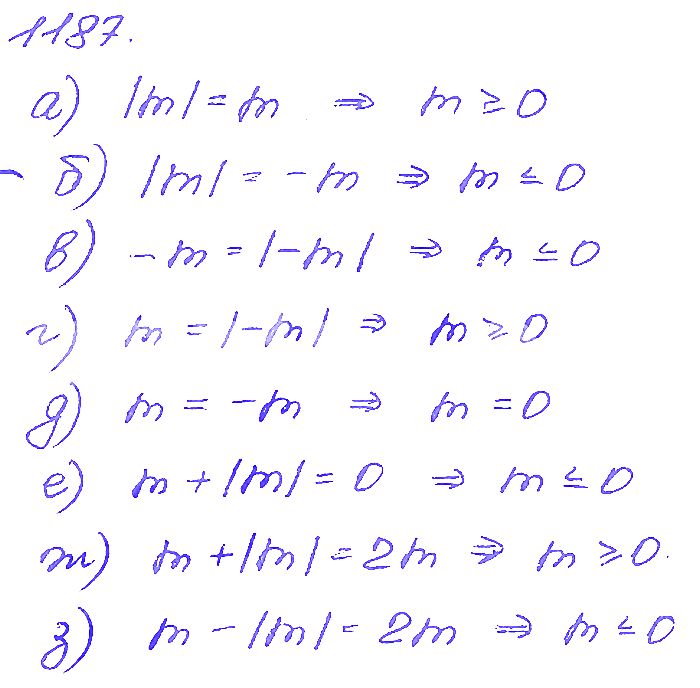 1187.
а) |m| = m ⇒ m ≥ 0
б) |m| = -m ⇒ m ≤ 0
в) -m = |-m| ⇒ m ≤ 0
г) m = |-m| ⇒ m ≥ 0
д) m = -m ⇒ m = 0
е) m + |m| = 0 ⇒ m ≤ 0
ж) m + |m| = 2m ⇒ m ≥ 0.
з) m - |m| = 2m ⇒ m ≤ 0